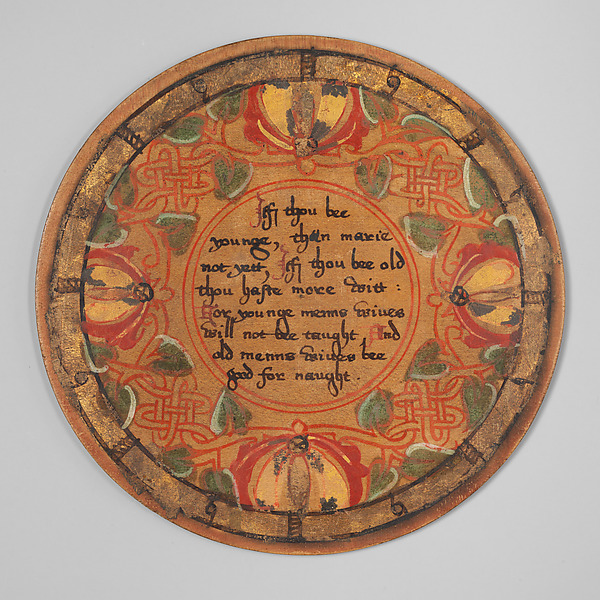 Iff thou bee
younge, then marie
not yett, Iff thou bee old
thou haste more witt :
For younge menns wives
will not bee taught And
old menns wives bee
good for naught .